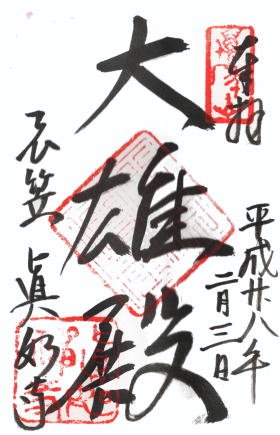 奉拝
平成廿八年
二月三日
大雄殿
衣笠
真如寺